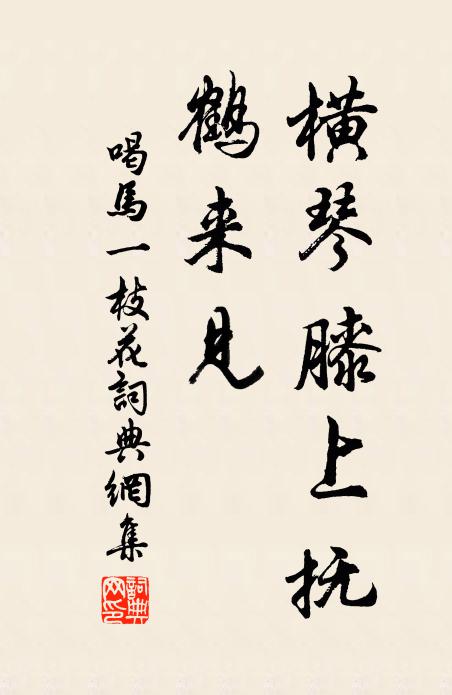 横琴膝上抚
鶴来见
喝馬一枝花詞典網集
詞典网印